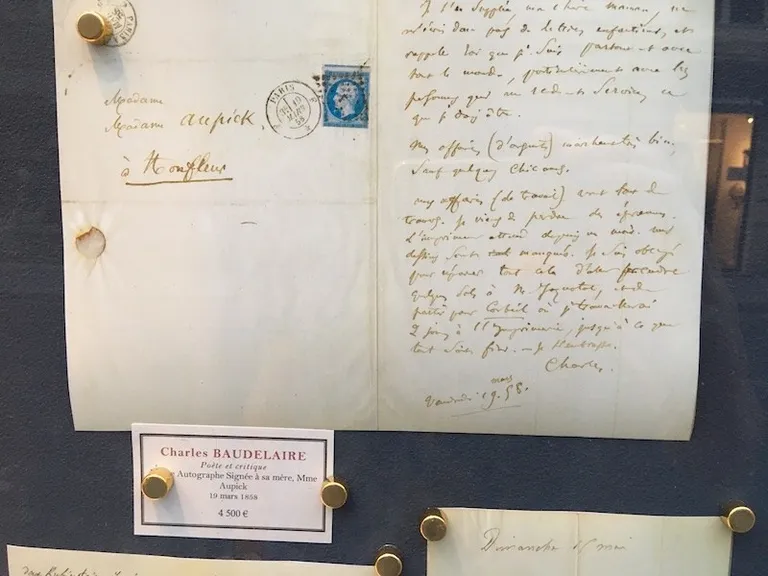 PARIS
19
MARS
58
Madame
Madame Aupick,
à Honfleur
Je t'en supplie ma chère maman, ne
de lettres enfantines, et
rappelle toi que je suis partout et avec
tout le monde, particulièrement avec les
personnes qui me rendent Services, ce
que je dois être.
Mes affaires (d'argent) marchent très bien,
Sauf quelques chicanes.
mes affaires (de travail) vont tout de
travers. Je viens de perdre des épreuves.
L'imprimeur attend depuis un mois. mes
dessins sont manqués. Je suis obligé
pour réparer tout cela d'aller prendre
quelques à M. Jaquotot, et de
partir pour Corbeil où je travaillerai
jours à l'Imprimerie, jusqu'à ce que
tout soit fini. — Je t'embrasse.
Charles.
Vendredi 19 mars 58.
Charles BAUDELAIRE
Poète et critique
Autographe Signée à sa mère, Mme
Aupick
19 mars 1858
4 500 €
Dimanche mai